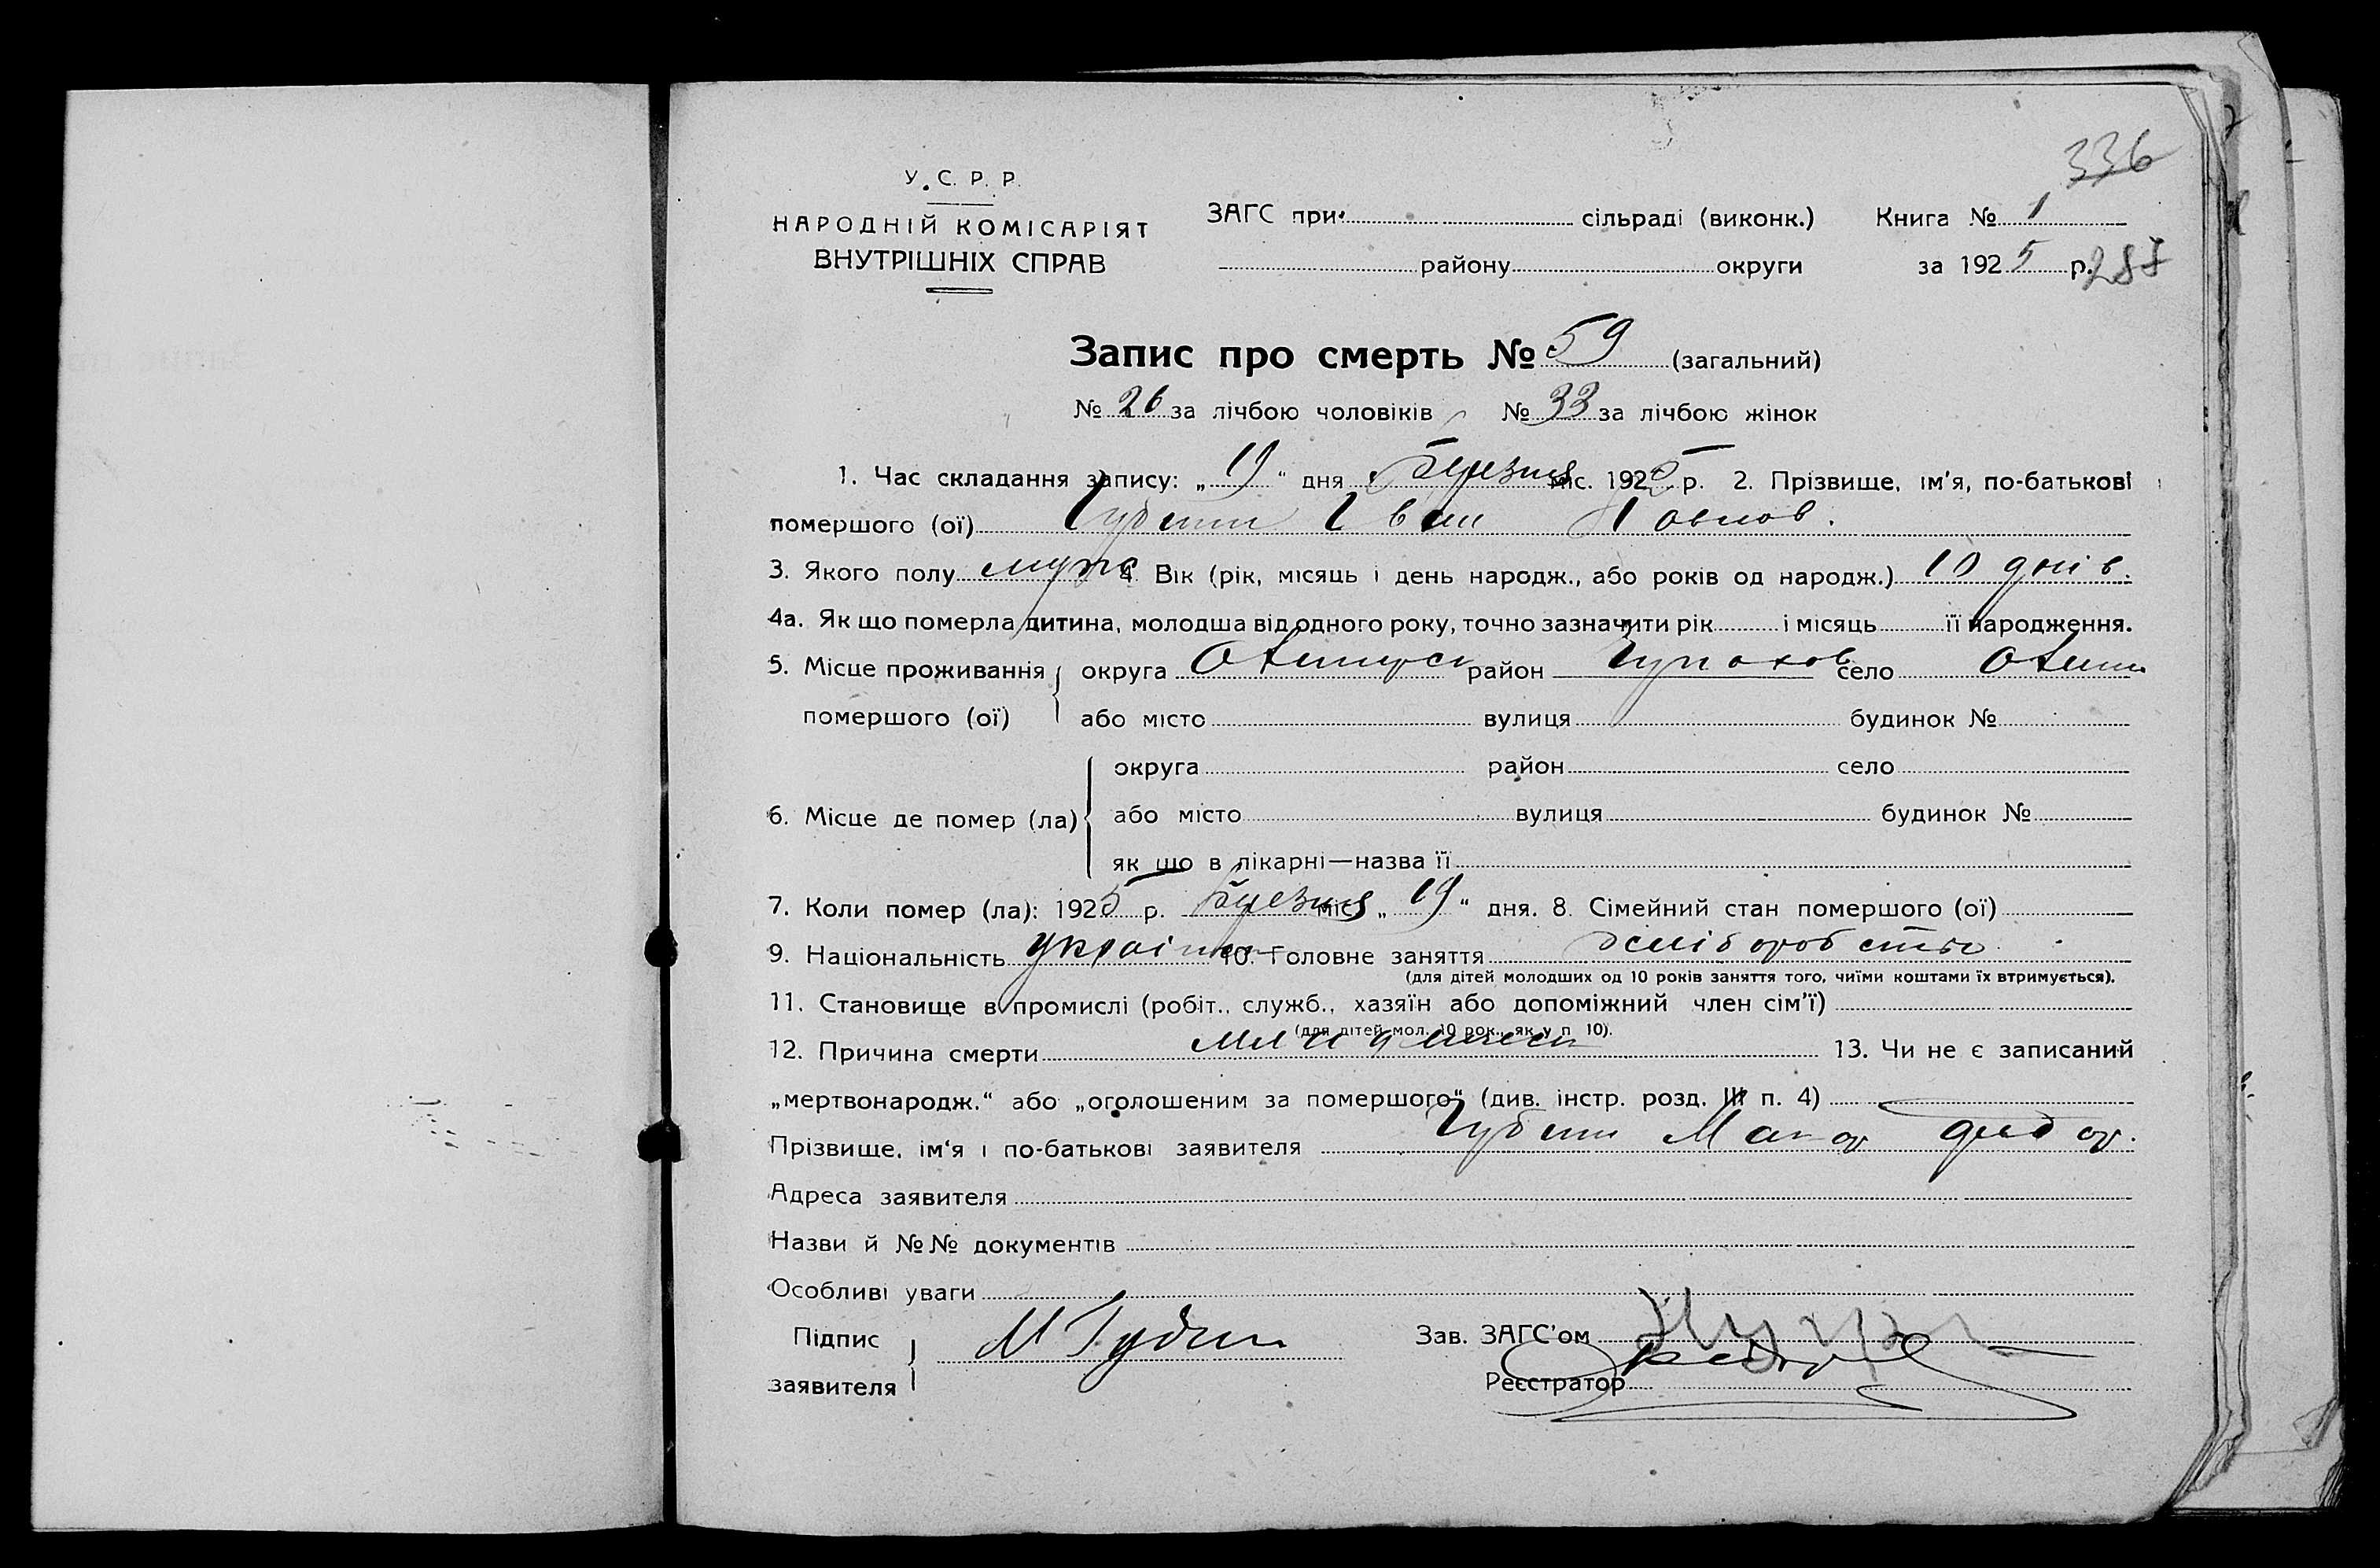 336
У. С. Р. Р.
НАРОДНІЙ КОМІСАРІЯТ
ВНУТРІШНІХ СПРАВ
ЗАГС при сільраді (виконк.) Книга № 1
району округи за 1925 р. 287
Запис про смерть № 59 (загальний)
№ 26 за лічбою чоловіків № 33 за лічбою жінок
1. Час складання запису: „19“ дня Березня міс. 1925 р. 2. Прізвище, ім'я, по-батькові
помершого (ої) Іван Павлов.
3. Якого полу муж 4. Вік (рік, місяць і день народж., або років од народж.) 10 днів.
4а. Як що померла дитина, молодша від одного року, точно зазначити рік і місяць її народження.
5. Місце проживання округа район село
помершого (ої) або місто вулиця будинок №
округа район село
6. Місце де помер (ла) або місто вулиця будинок №
як що в лікарні—назва її
7. Коли помер (ла): 1925 р. Березня міс. „19“ дня. 8. Сімейний стан помершого (ої)
9. Національність 10. Головне заняття хліборобство
(для дітей молодших од 10 років заняття того, чиїми коштами їх втримується).
11. Становище в промислі (робіт., служб., хазяїн або допоміжний член сім'ї)
(для дітей мол. 10 рок., як у п. 10).
12. Причина смерти 13. Чи не є записаний
„мертвонародж.“ або „оголошеним за помершого“ (див. інстр. розд. III п. 4)
Прізвище, ім'я і по-батькові заявителя
Адреса заявителя
Назви й №№ документів
Особливі уваги
Підпис Зав. ЗАГС'ом
заявителя Реєстратор